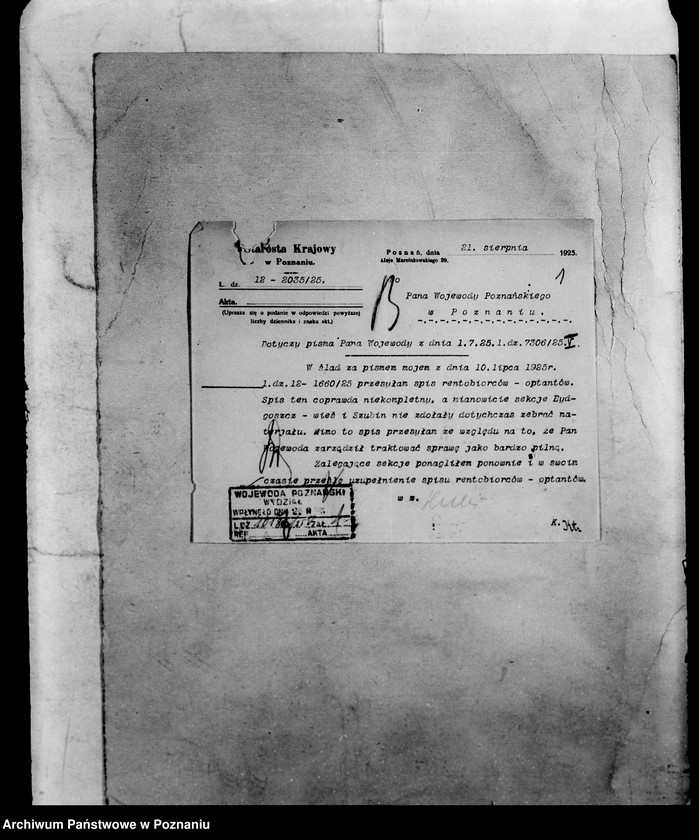 Starosta Krajowy
w Poznaniu.
Poznań, dnia 21. sierpnia 1925.
Aleje Marcinkowskiego 29.
L. dz. 12 - 2035/25.
Akta.
(Uprasza się o podanie w odpowiedzi powyższej
liczby dziennika i znaku akt.)
1
Do
Pana Wojewody Poznańskiego
w Poznaniu.
Dotyczy pisma Pana Wojewody z dnia 1.7.25.l.dz.7306/25.V.
W ślad za pismem mojem z dnia 10.lipca 1925r.
l.dz.12- 1660/25 przesyłam spis rentobiorców - optantów.
Spis ten coprawda niekompletny, a mianowicie sekcje Byd-
goszcz - wieś i Szubin nie zdołały dotychczas zebrać ma-
terjału. Mimo to spis przesyłam ze względu na to, że Pan
Wojewoda zarządził traktować sprawę jako bardzo pilną.
Zalegające sekcje ponagliłem ponownie i w swoim
czasie prześlę uzupełnienie spisu rentobiorców - optantów.
w z.
K.
WOJEWODA POZNAŃSKI
WYDZIAŁ
WPŁYNĘŁO DNIA
L.DZ. ZAŁ.
REF. AKTA
Archiwum Państwowe w Poznaniu